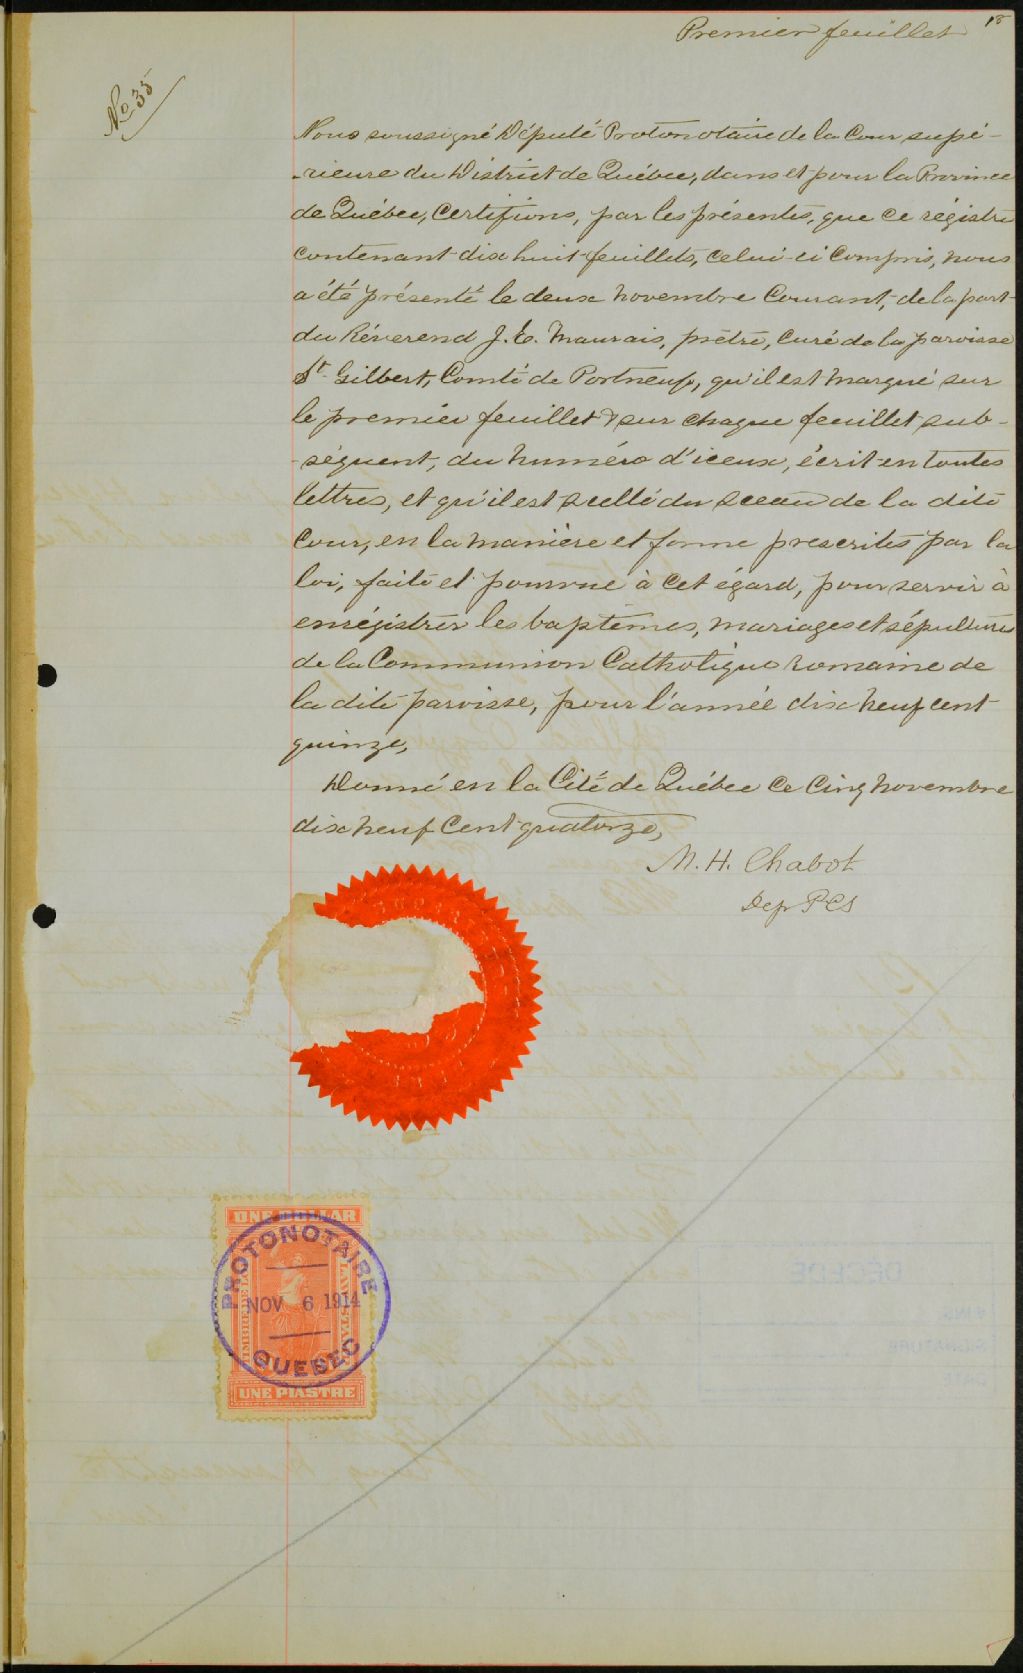 Premier feuillet 18
No 35
Nous soussigné Député Protonotaire de la Cour supé-
-rieure du District de Québec, dans et pour la Province
de Québec, Certifions, par les présentes, que ce régistre
contenant dix huit feuillets, celui-ci Compris, nous
a été présenté le deux novembre Courant, de la part
du Réverend J. E. Maurais, prêtre, Curé de la paroisse
St Gilbert, Comté de Portneuf, qu'il est marqué sur
le premier feuillet & sur chaque feuillet sub-
-séquent, du numéro d'iceux, écrit en toutes
lettres, et qu'il est scellé du sceau de la dite
Cour, en la manière et forme prescrites par la
loi, faite et pourvue à cet égard, pour servir à
enrégistrer les baptêmes, mariages et sépultures
de la Communion Catholique romaine de
la dite paroisse, pour l'année dix neuf cent
quinze,
Donné en la Cité de Québec ce Cinq novembre
dix neuf Cent quatorze,
M. H. Chabot
Dep P C S
ONE DOLLAR
PROTONOTAIRE
NOV 6 1914
QUEBEC
UNE PIASTRE